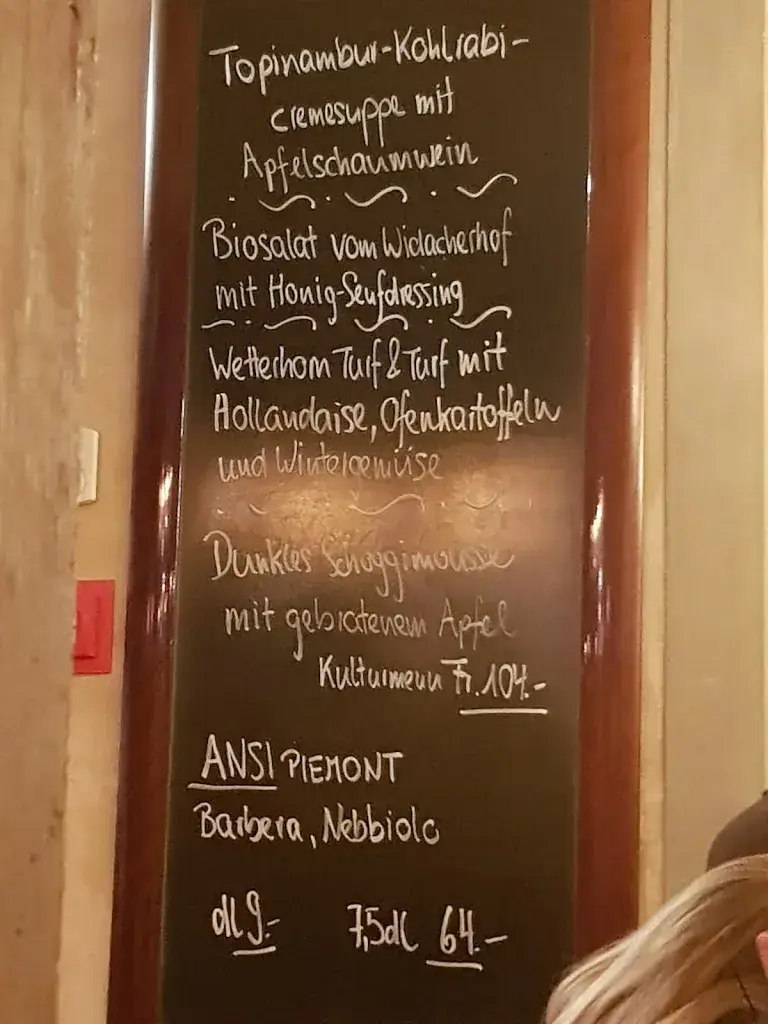 Topinambur-Kohlrabi-
cremesuppe mit
Apfelschaumwein
Biosalat vom Widacherhof
mit Honig-Senfdressing
Wetterhorn Turf & Turf mit
Hollandaise, Ofenkartoffeln
und Wintergemüse
Dunkles Schoggimousse
mit gebratenem Apfel
Kulturmenu Fr. 104.-
ANSI PIEMONT
Barbera, Nebbiolo
dl 9.- 7,5dl 64.-